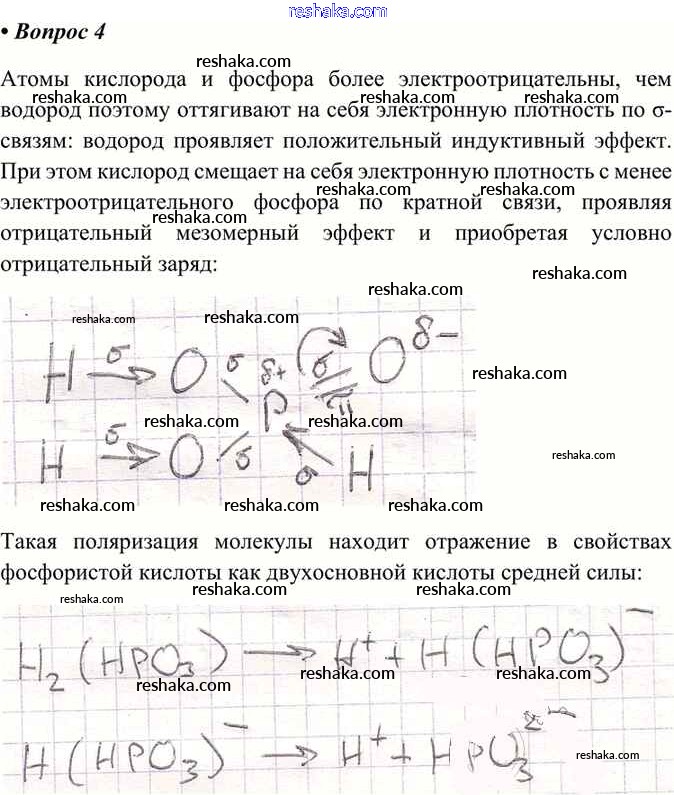 reshaka.com
• Вопрос 4
reshaka.com reshaka.com
Атомы кислорода и фосфора более электроотрицательны, чем
reshaka.com reshaka.com reshaka.com
водород поэтому оттягивают на себя электронную плотность по σ-
связям: водород проявляет положительный индуктивный эффект.
reshaka.com reshaka.com
При этом кислород смещает на себя электронную плотность с менее
reshaka.com reshaka.com
электроотрицательного фосфора по кратной связи, проявляя
reshaka.com
отрицательный мезомерный эффект и приобретая условно
reshaka.com
отрицательный заряд:
reshaka.com
reshaka.com reshaka.com
H σ→ O σ δ+ σ O δ−
reshaka.com
P π
reshaka.com reshaka.com
H σ→ O σ σ H
reshaka.com
reshaka.com reshaka.com
Такая поляризация молекулы находит отражение в свойствах
reshaka.com reshaka.com
фосфористой кислоты как двухосновной кислоты средней силы:
reshaka.com reshaka.com
H₂(HPO₃) → H⁺ + H(HPO₃)⁻
reshaka.com reshaka.com reshaka.com
H(HPO₃)⁻ → H⁺ + HPO₃²⁻
reshaka.com